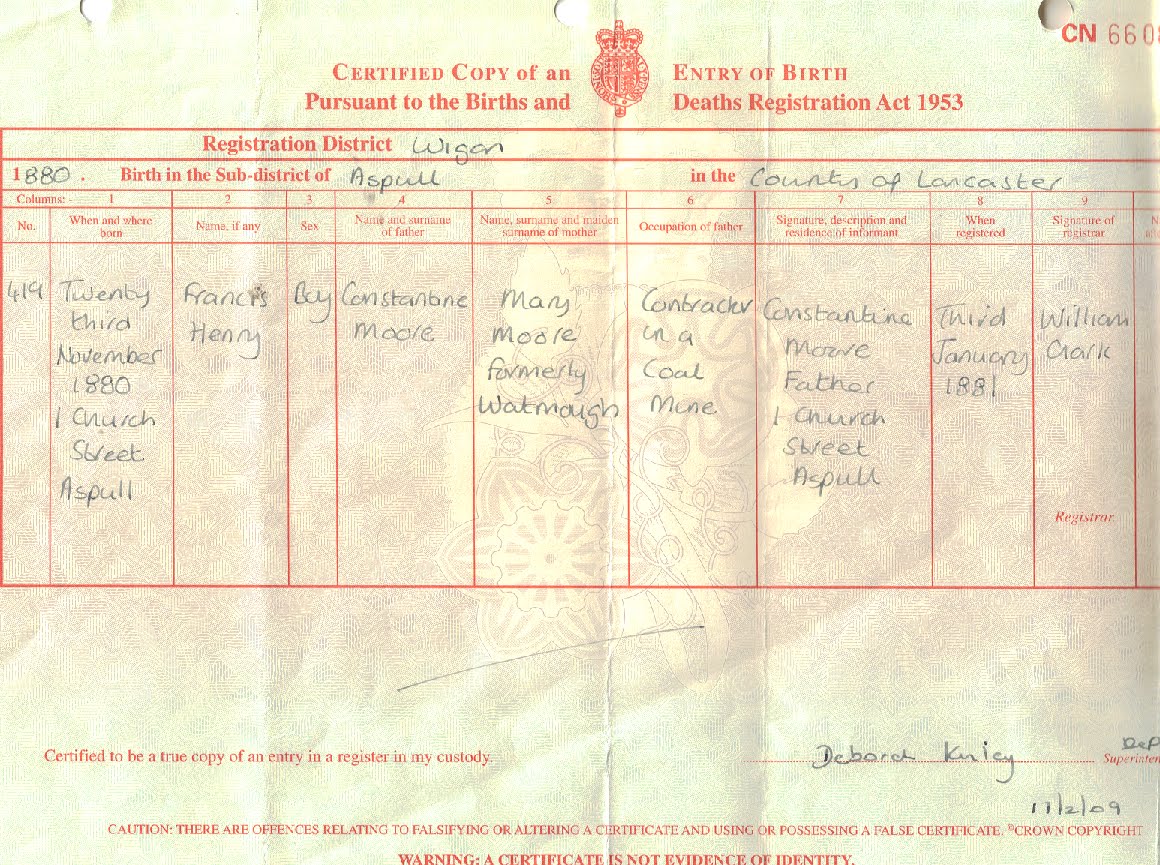 CN 660
CERTIFIED COPY of an ENTRY OF BIRTH
Pursuant to the Births and Deaths Registration Act 1953
Registration District Wigan
1880. Birth in the Sub-district of Aspull in the County of Lancaster
Columns:- 1 2 3 4 5 6 7 8 9
No. When and where born Name, if any Sex Name and surname of father Name, surname and maiden surname of mother Occupation of father Signature, description and residence of informant When registered Signature of registrar
419 Twenty Francis Boy Constantine Mary Contractor Constantine Third William
third Henry Moore Moore in a Moore January Clark
November formerly Coal Father 1881
1880 Watmough Mine 1 Church
1 Church Street
Street Aspull
Aspull
Registrar
Certified to be a true copy of an entry in a register in my custody.
Deborah
Dep
Superinten
17/2/09
CAUTION: THERE ARE OFFENCES RELATING TO FALSIFYING OR ALTERING A CERTIFICATE AND USING OR POSSESSING A FALSE CERTIFICATE. ©CROWN COPYRIGHT
WARNING: A CERTIFICATE IS NOT EVIDENCE OF IDENTITY.